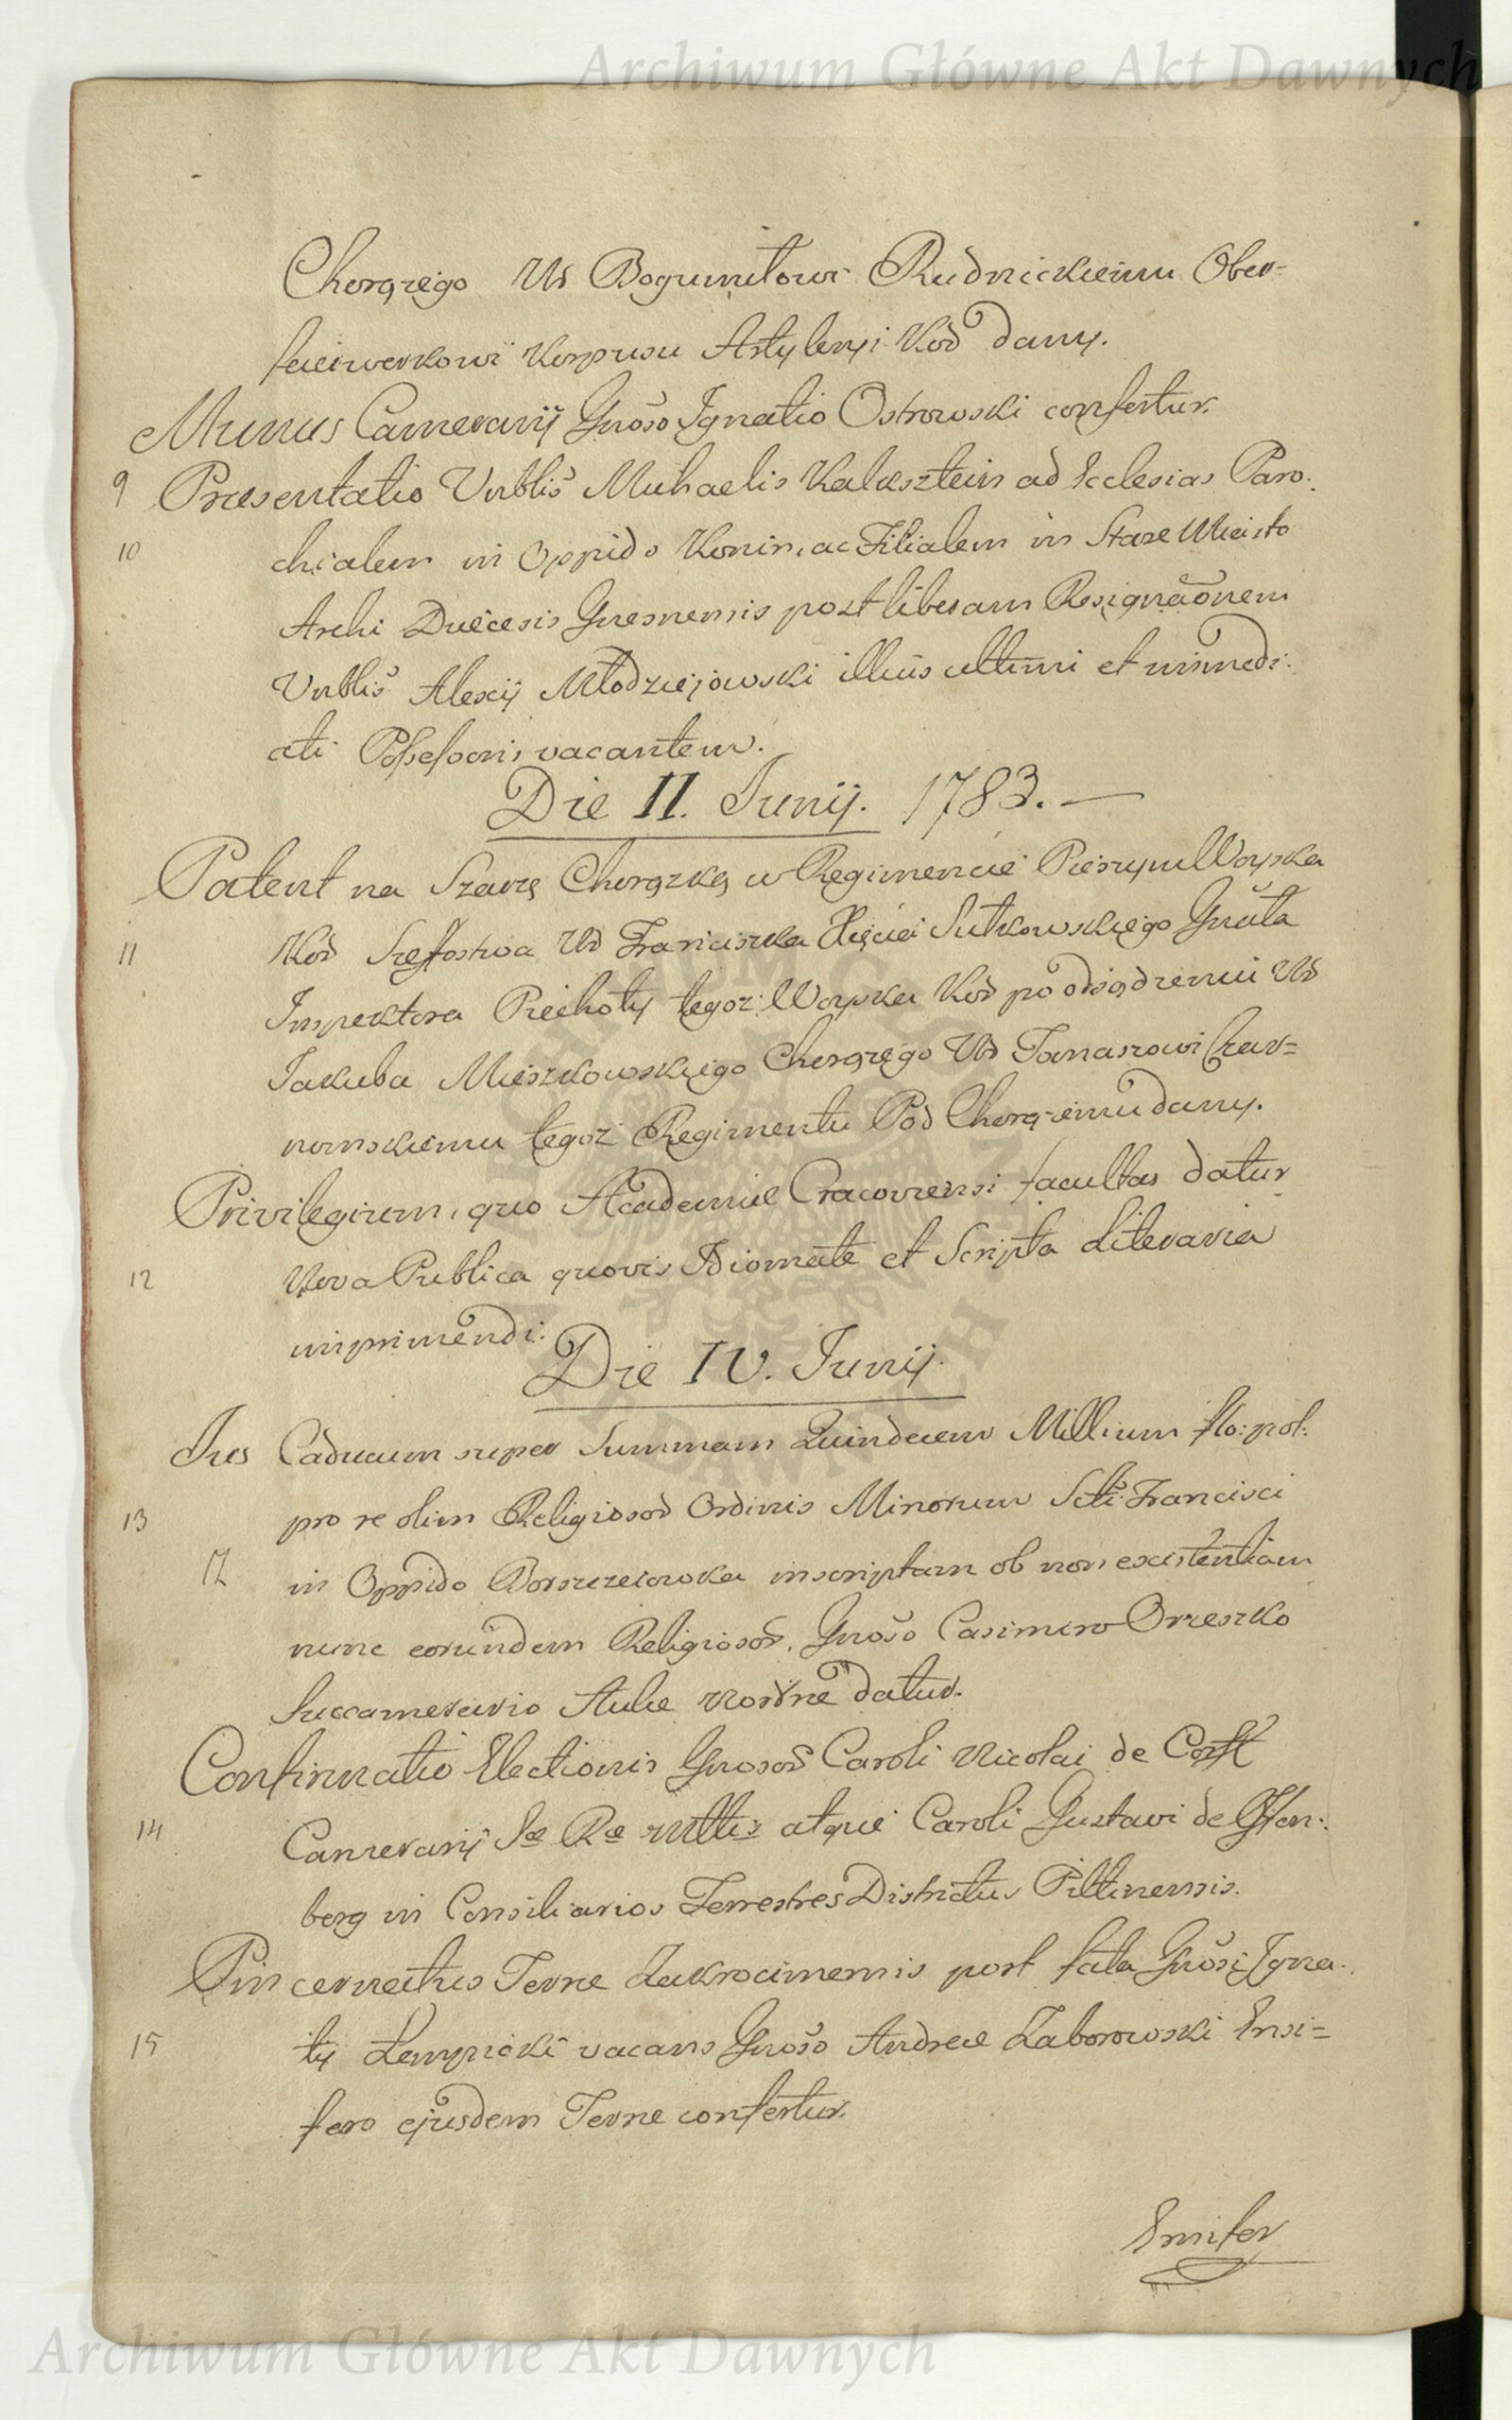 Archiwum Główne Akt Dawnych
Chorążego Ur Bogumiłowi Rudnickiemu Ober-
feierwerkowi Korpusu Artyleryi Kor̃ dany.
Munus Camerarij Gnoso Ignatio Ostrowski confertur.
9 Præsentatio Vnblis Michaelis Kalksztein ad Ecclesias Paro:
10 chialem in Oppido Konin, ac Filialem in Stare Miasto
Archi Diæcesis Gnesnensis post liberam Resignãonem
Vnblis Alexij Młodziejowski illius ultimi et immedi:
ati Possessoris vacantem.
Die II. Junij. 1783. —
Patent na Szarżę Chorązką w Regimencie Pieszym Woyska
11 Kor̃ Szefostwa Ur Franciszka Xięcia Sułkowskiego Gnrła
Inspektora Piechoty tegoż Woyska Kor̃ po odsądzeniu Ur
Jakuba Mieszkowskiego Chorążego Ur Tomaszowi Czar=
nomskiemu tegoż Regimentu Pod Chorążemu dany.
Privilegium, quo Academiæ Cracoviensi facultas datur
12 Nova Publica quovis Idiomate et Scripta Literaria
imprimendi.
Die IV. Junij.
Jus Caducum super Summam Quindecem Millium flo: pol:
13 pro re olim Religiosor̃ Ordinis Minorum Scti Francisci
in Oppido inscriptam ob non existentiam
nunc eorundem Religiosor̃, Gnoso Casimiro Orzeszko
Succamerario Aulæ Nostræ datur.
Confirmatio Electionis Gnosor̃ Caroli Nicolai de Corff
14 Camerarij Sæ Ræ Mttis atque Caroli Gustavi de
berg in Consiliarios Terrestres Districtus Piltinensis.
Pincernatus Terræ Zakrocimensis post fata Gnosi Igna:
15 tij Łempicki vacans Gnoso Andreæ Zaborowski Ensi=
fero ejusdem Terræ confertur.
Ensifer
Archiwum Główne Akt Dawnych